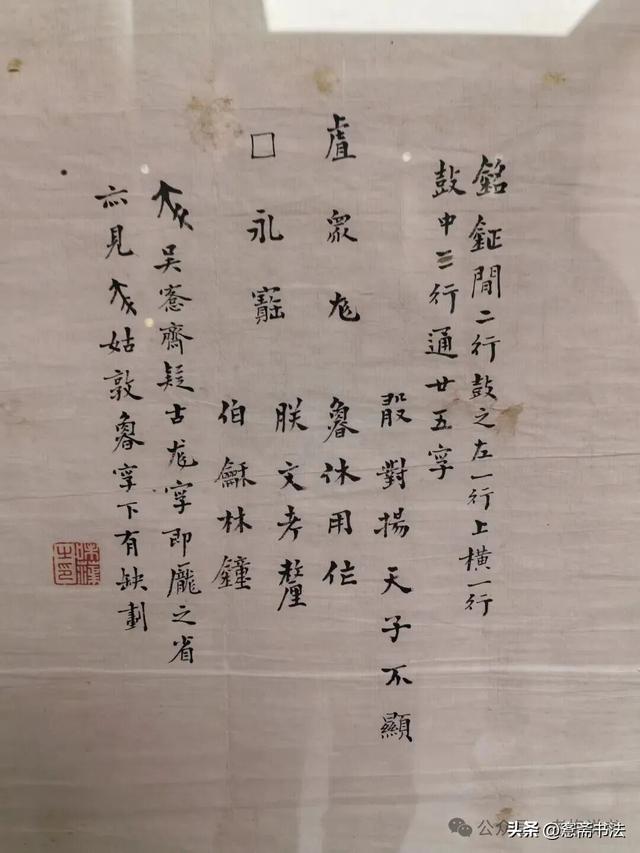 銘鉦間二行鼓之左一行上橫一行
鼓中三行通廿五字
對揚天子不顯
魯休用作
朕文考釐
伯龢林鐘
虘眔尨
□永寶
吳愙齋疑古尨字即龐之省
亦見姑敦魯字下有缺劃
公众号
头条 @愙斋书法